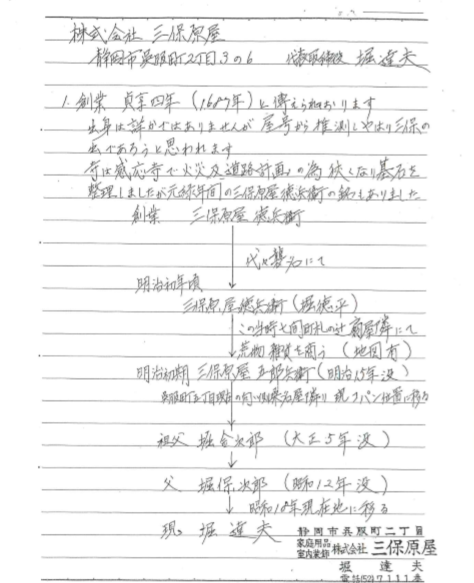 株式会社 三保原屋
静岡市呉服町2丁目3の6 代表取締役 堀達夫
1. 創業 貞享四年 (1687年) と傳えられております
出身は詳かではありませんが屋号から推測しやはり三保の
出であろうと思われます
寺は感応寺で火災及道路計画の為狭くなり墓石を
整理しましたが元禄年間の三保原屋徳兵衛の銘もありました
創業 三保原屋 徳兵衛
代々襲名にて
明治初年頃
三保原屋徳兵衛 (堀徳平)
この当時七間町札の辻扇屋隣にて
荒物雑貨を商う (地図有)
明治初期 三保原屋 五郎兵衛 (明治15年没)
呉服町五丁目 隣り 現 パン位置に移る
祖父 堀合次郎 (大正5年没)
父 堀保次郎 (昭和12年没)
昭和18年現在地に移る
現 堀達夫
静岡市呉服町二丁目
家庭用品
室内装飾 株式会社 三保原屋
堀達夫
電話 7111番